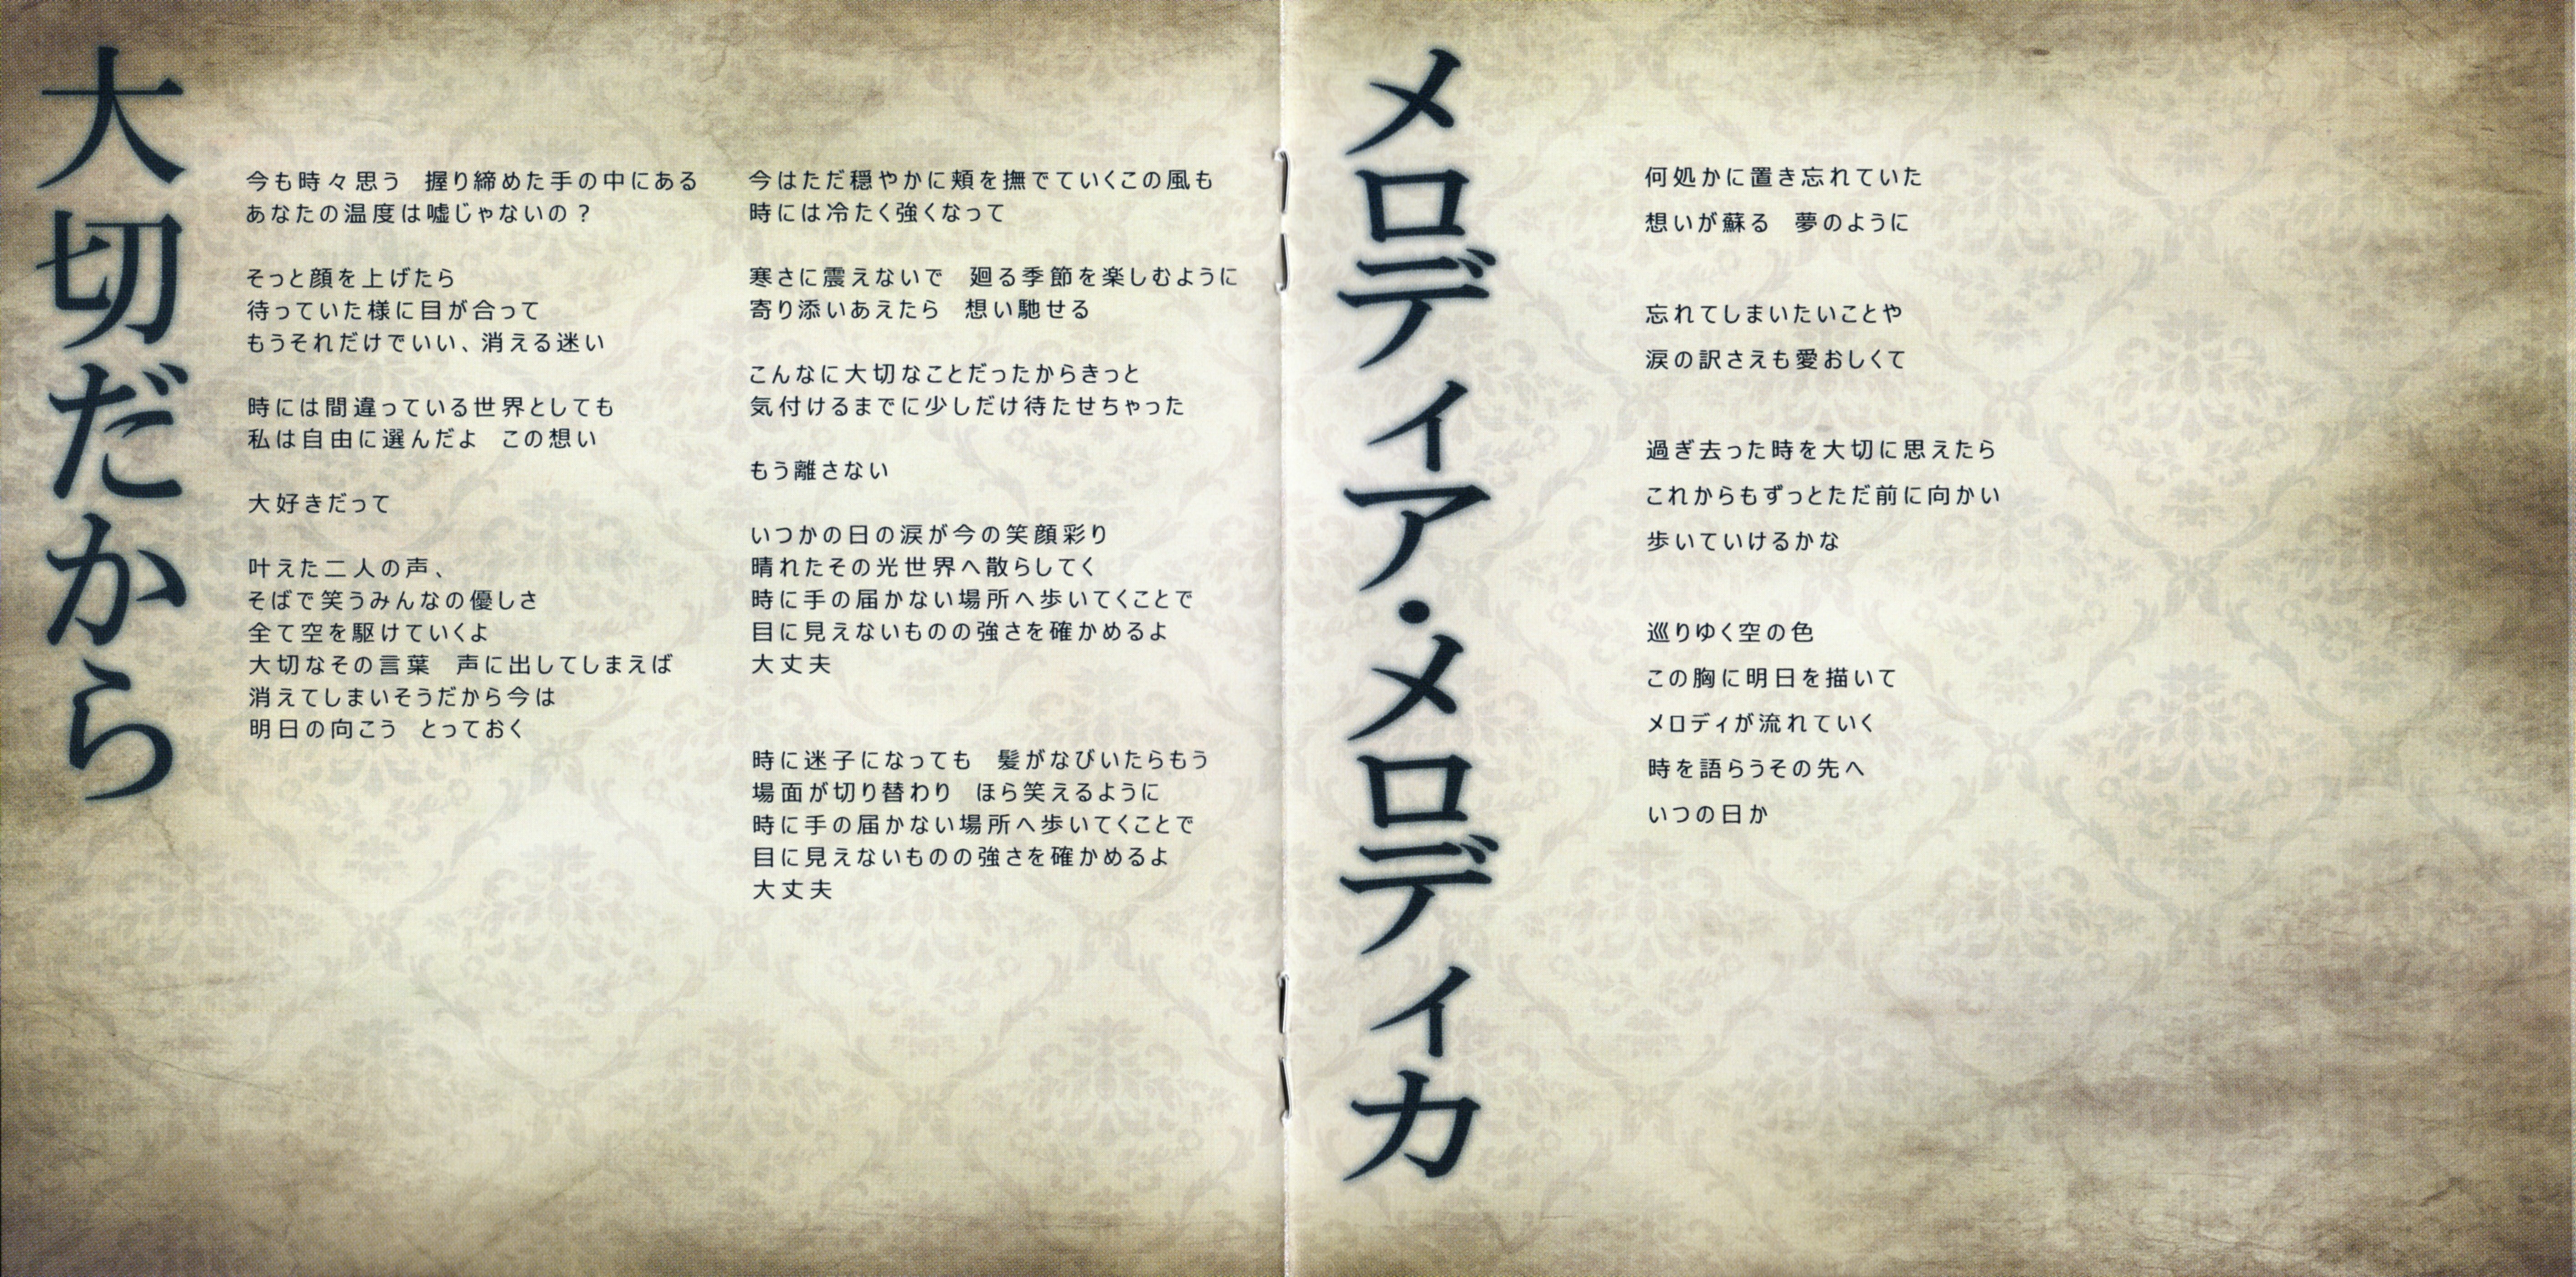 大切だから
今も時々思う　握り締めた手の中にある
あなたの温度は嘘じゃないの？
そっと顔を上げたら
待っていた様に目が合って
もうそれだけでいい、消える迷い
時には間違っている世界としても
私は自由に選んだよ　この想い
大好きだって
叶えた二人の声、
そばで笑うみんなの優しさ
全て空を駆けていくよ
大切なその言葉　声に出してしまえば
消えてしまいそうだから今は
明日の向こう　とっておく
今はただ穏やかに頬を撫でていくこの風も
時には冷たく強くなって
寒さに震えないで　廻る季節を楽しむように
寄り添いあえたら　想い馳せる
こんなに大切なことだったからきっと
気付けるまでに少しだけ待たせちゃった
もう離さない
いつかの日の涙が今の笑顔彩り
晴れたその光世界へ散らしてく
時に手の届かない場所へ歩いてくことで
目に見えないものの強さを確かめるよ
大丈夫
時に迷子になっても　髪がなびいたらもう
場面が切り替わり　ほら笑えるように
時に手の届かない場所へ歩いてくことで
目に見えないものの強さを確かめるよ
大丈夫
メロディア・メロディカ
何処かに置き忘れていた
想いが蘇る　夢のように
忘れてしまいたいことや
涙の訳さえも愛おしくて
過ぎ去った時を大切に思えたら
これからもずっとただ前に向かい
歩いていけるかな
巡りゆく空の色
この胸に明日を描いて
メロディが流れていく
時を語らうその先へ
いつの日か